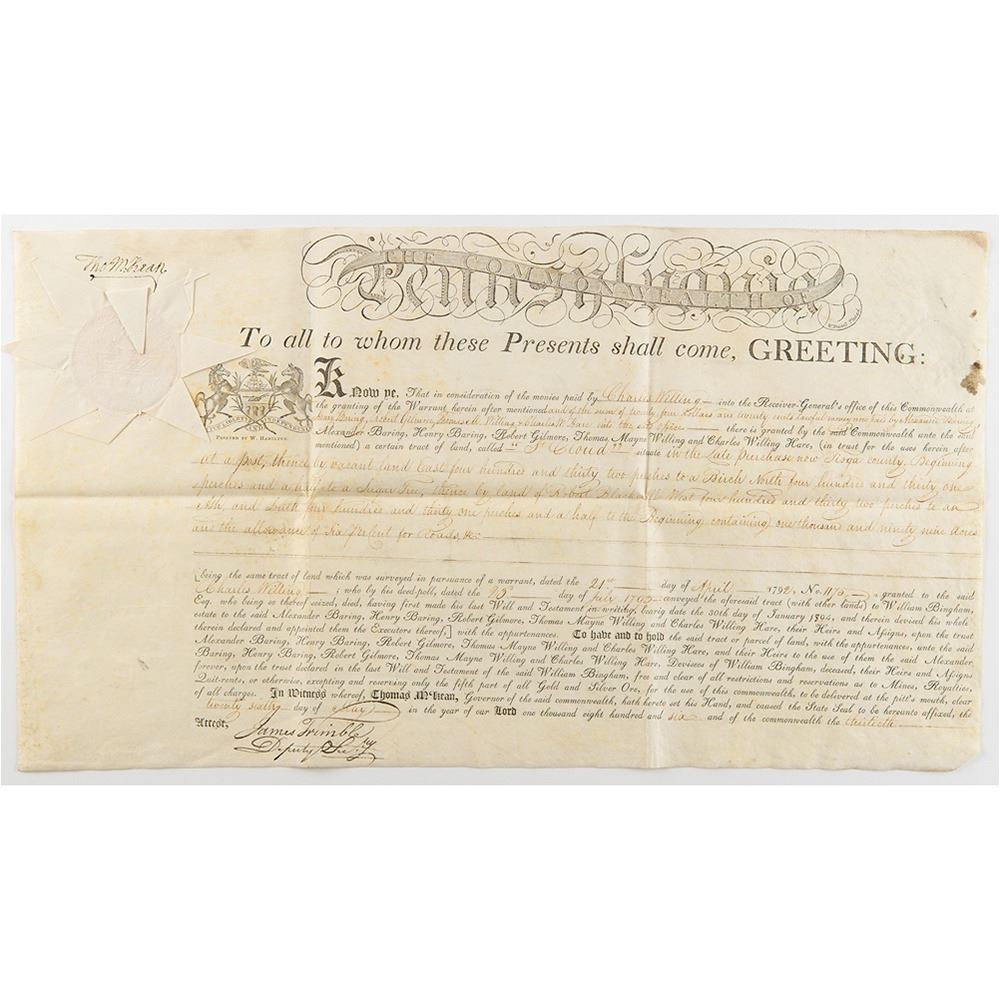 Tho M:Kean
THE COMMONWEALTH OF
Pennsylvania
To all to whom these Presents shall come, GREETING:
PRINTED BY W. HAMILTON.
Know ye, That in consideration of the monies paid by Charles Willing into the Receiver-General's office of this Commonwealth at
the granting of the Warrant herein after mentioned and of the sum of twenty four dollars and twenty cents lawful money now paid by Alexander Baring
Henry Baring, Robert Gilmore, Thomas M. Willing & Charles W. Hare into the said office there is granted by the said Commonwealth unto the said
Alexander Baring, Henry Baring, Robert Gilmore, Thomas Mayne Willing and Charles Willing Hare, (in trust for the uses herein after
mentioned) a certain tract of land, called "St Cloud" situate in the Late Purchase now Tioga county, Beginning
at a post, thence by vacant land East four hundred and thirty two perches to a Birch North four hundred and thirty one
perches and a half to a Sugar Tree, thence by land of Robert Blackwell West four hundred and thirty two perches to an
Ash, and South four hundred and thirty one perches and a half to the Beginning containing one thousand and ninety nine Acres
and the allowance of Six Per Cent for Roads, &c
[being the same tract of land which was surveyed in pursuance of a warrant, dated the 21st day of April 1792, No. granted to the said
Charles Willing ; who by his deed-poll, dated the day of July conveyed the aforesaid tract (with other lands) to William Bingham,
Esq. who being so thereof seized, died, having first made his last Will and Testament in writing, bearig date the 30th day of January 1804, and therein devised his whole
estate to the said Alexander Baring, Henry Baring, Robert Gilmore, Thomas Mayne Willing and Charles Willing Hare, their Heirs and Assigns, upon the trust
therein declared and appointed them the Executors thereof,] with the appurtenances. To have and to hold the said tract or parcel of land, with the appurtenances, unto the said
Alexander Baring, Henry Baring, Robert Gilmore, Thomas Mayne Willing and Charles Willing Hare, and their Heirs to the use of them the said Alexander
Baring, Henry Baring, Robert Gilmore, Thomas Mayne Willing and Charles Willing Hare, Devisees of William Bingham, deceased, their Heirs and Assigns
forever, upon the trust declared in the last Will and Testament of the said William Bingham, free and clear of all restrictions and reservations as to Mines, Royalties,
Quit-rents, or otherwise, excepting and reserving only the fifth part of all Gold and Silver Ore, for the use of this commonwealth, to be delivered at the pitt's mouth, clear
of all charges. In Witness whereof, Thomas M'Kean, Governor of the said commonwealth, hath hereto set his Hand, and caused the State Seal to be hereunto affixed, the
twenty day of May in the year of our Lord one thousand eight hundred and six and of the commonwealth the thirtieth
Attest,
James Trimble
Deputy Secry